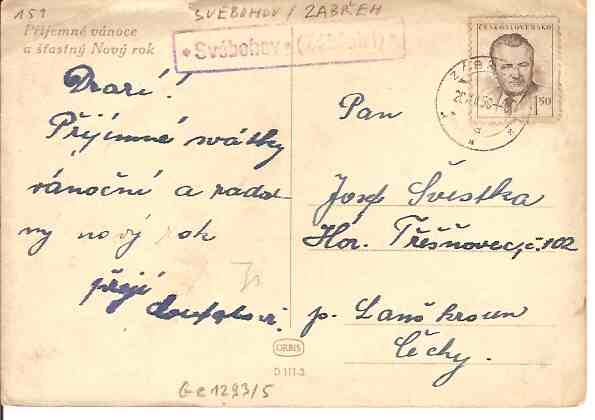 151
SVÉBOHOV / ZÁBŘEH
Příjemné vánoce
a šťastný Nový rok
Svébohov
ČESKOSLOVENSKO
1 50
Drazí!
Příjemné svátky
vánoční a rados
ný nový rok
přejí
Pan
Josef Švestka
Hor. Třešňovec, č. 102
p. Lanškroun
Čechy.
ORBIS
D 111-3
Gc 1293/5